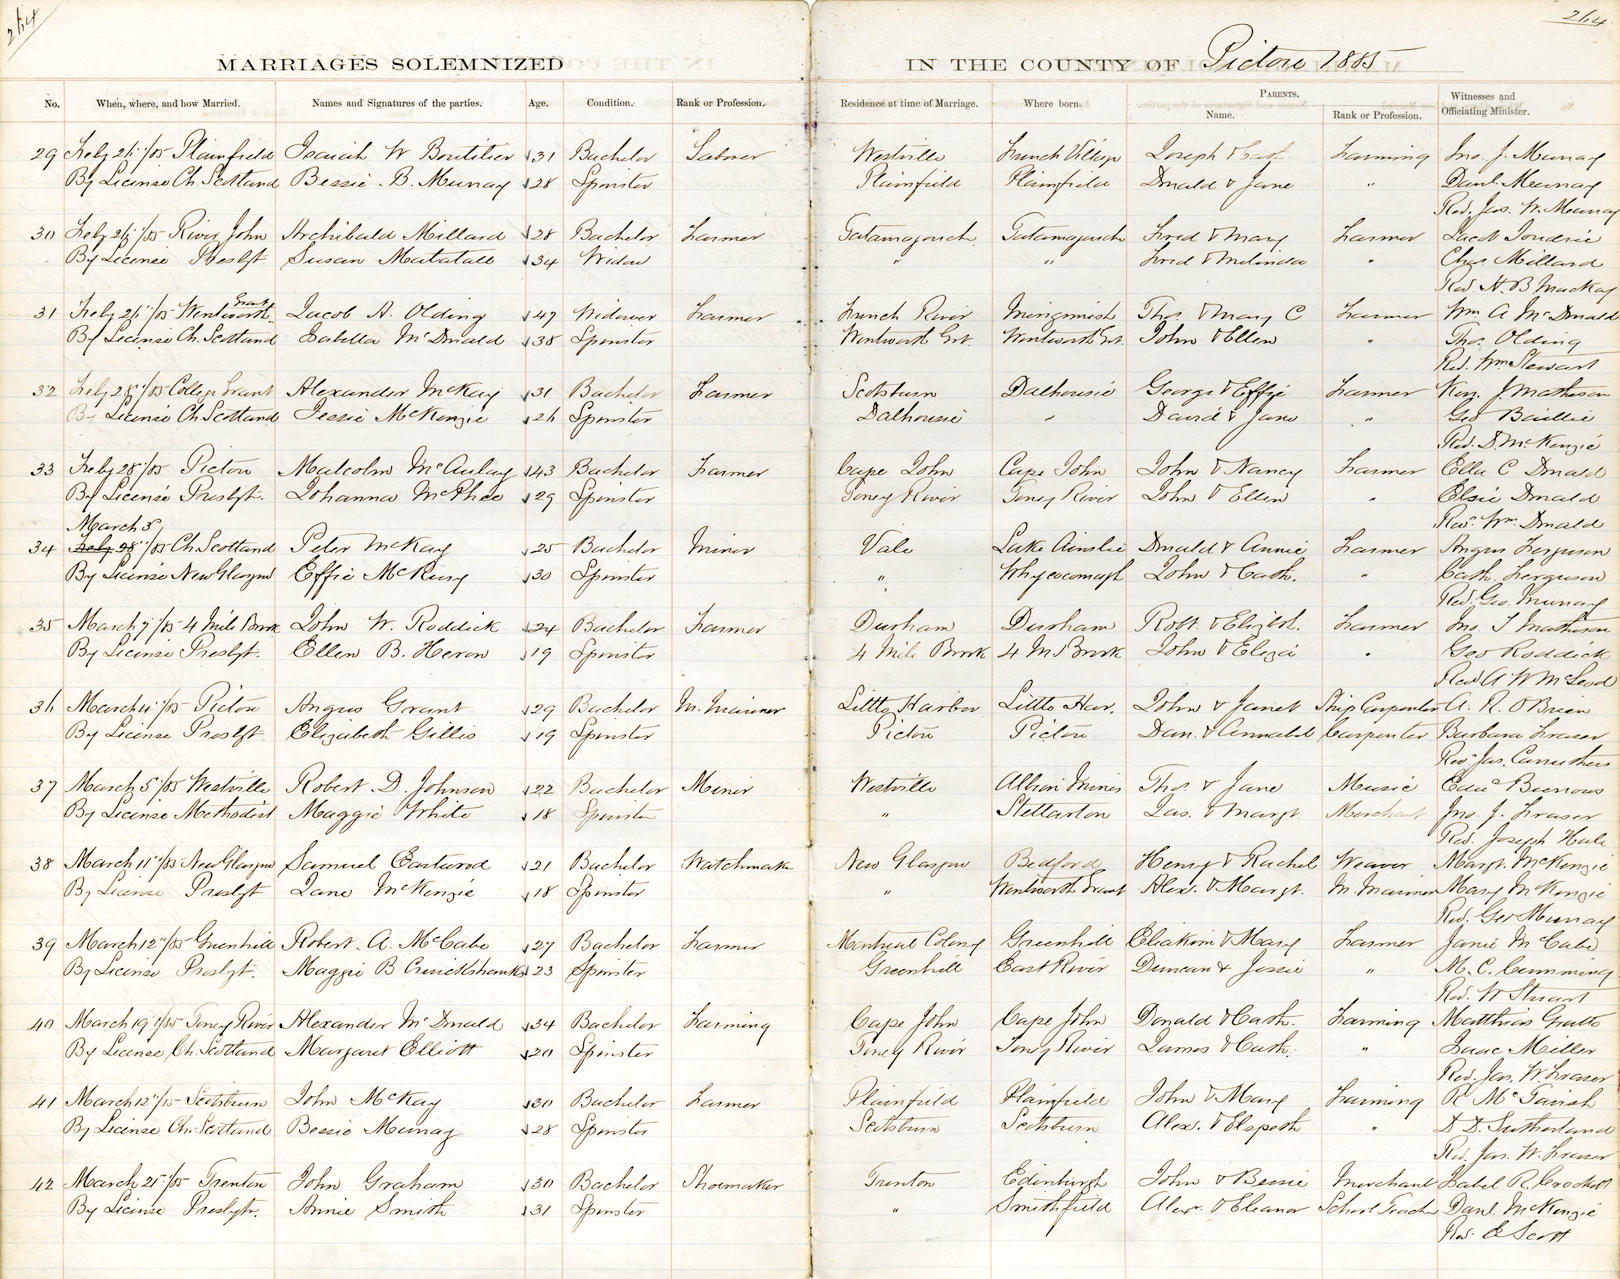 264
264
MARRIAGES SOLEMNIZED IN THE COUNTY OF Pictou 1885
No. When, where, and how Married. Names and Signatures of the parties. Age. Condition. Rank or Profession. Residence at time of Marriage. Where born. PARENTS. Name. Rank or Profession. Witnesses and Officiating Minister.
29 Feby 26"/85 Plainfield Isaiah W Boutilier 31 Bachelor Laborer Westville French Village Joseph & Cath Farming Jno. J. Murray
By License Ch. Scotland Bessie B. Murray 28 Spinster Plainfield Plainfield Donald & Jane " Danl. Murray
Rev. Jas. W. Murray
30 Feby 26"/85 River John Archibald Millard 28 Bachelor Farmer Tatamagouch Tatamagouch Fred & Mary Farmer Jacob Joudrie
By License Presbyt Susan Matatall 34 Widow " " Fred & Melinda " Chas Millard
Rev. H. B. MacKay
31 Feby 26"/85 Wentworth Grant Jacob A. Olding 47 Widower Farmer French River Merigomish Thos. & Mary C Farmer Wm A McDonald
By License Ch. Scotland Isabella McDonald 38 Spinster Wentworth Grt. Wentworth Grt. John & Ellen " Thos. Olding
Rev. Wm Stewart
32 Feby 28"/85 College Grant Alexander McKay 31 Bachelor Farmer Scotsburn Dalhousie George & Effie Farmer Ken. J. Matheson
By License Ch. Scotland Jessie McKenzie 26 Spinster Dalhousie " David & Jane " Geo Baillie
Rev. D. McKenzie
33 Feby 28"/85 Pictou Malcolm McAulay 43 Bachelor Farmer Cape John Cape John John & Nancy Farmer Ella C Donald
By License Presbyt. Johanna McPhee 29 Spinster Toney River Toney River John & Ellen " Elsie Donald
Rev. Wm. Donald
March 5
34 Feby 28"/85 Ch. Scotland Peter McKay 25 Bachelor Miner Vale Lake Ainslie Donald & Annie Farmer Angus Ferguson
By License New Glasgow Effie McKay 30 Spinster " Whycocomagh John & Cath. " Cath. Ferguson
Rev. Geo. Murray
35 March 7"/85 4 Mile Brook John W. Roddick 24 Bachelor Farmer Durham Durham Robt. & Elizbt. Farmer Jno. T Matheson
By License Presbyt. Ellen B. Heron 19 Spinster 4 Mile Brook 4 M. Brook John & Eliza " Geo Roddick
Rev. A W McLeod
36 March 4"/85 Pictou Angus Grant 29 Bachelor M. Mariner Little Harbor Little Har. John & Janet Ship Carpenter A. R. O'Brien
By License Presbyt Elizabeth Gillis 19 Spinster Pictou Pictou Dan. & Annabel Carpenter Barbara Fraser
Rev. Jas. Carruthers
37 March 5"/85 Westville Robert D. Johnson 22 Bachelor Miner Westville Albion Mines Thos. & Jane Music Edwd Burrows
By License Methodist Maggie White 18 Spinster " Stellarton Jas. & Margt Merchant Jno. J. Fraser
Rev. Joseph Hale
38 March 11"/85 New Glasgow Samuel Eastwood 21 Bachelor Watchmake New Glasgow Bedford Henry & Rachel Weaver Margt. McKenzie
By License Presbyt Jane McKenzie 18 Spinster " Wentworth Grant Alex. & Margt. M. Mariner Mary McKenzie
Rev. Geo Murray
39 March 12"/85 Greenhill Robert A. McCabe 27 Bachelor Farmer Montreal Colony Greenhill Eliakim & Mary Farmer Janie McCabe
By License Presbyt. Maggie B Cruickshanks 23 Spinster Greenhill East River Duncan & Jessie " M. C. Cumming
Rev. W Stuart
40 March 19"/85 Toney River Alexander McDonald 34 Bachelor Farming Cape John Cape John Donald & Cath. Farming Matthias Gratto
By License Ch. Scotland Margaret Elliott 20 Spinster Toney River Toney River James & Cath. " Isaac Miller
Rev. Jas. W. Fraser
41 March 12"/85 Scotsburn John McKay 30 Bachelor Farmer Plainfield Plainfield John & Mary Farming R McTavish
By License Ch. Scotland Bessie Murray 28 Spinster Scotsburn Scotsburn Alex. & Elspeth " D. D. Sutherland
Rev. Jas. W. Fraser
42 March 25"/85 Trenton John Graham 30 Bachelor Shoemaker Trenton Edinburgh John & Bessie Merchant Isabel R. Crockett
By License Presbytr. Annie Smith 31 Spinster " Smithfield Alex. & Eleanor School Teach Danl. McKenzie
Rev. E Scott